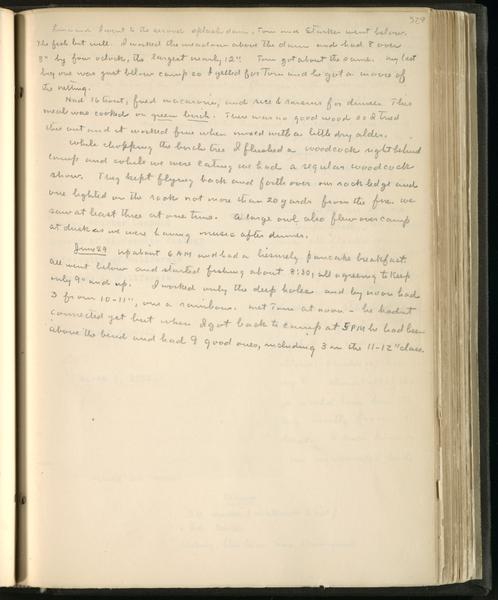 329
and I went to the second splash dam, Tom and Starker went below.
The fish bit well. I worked the meadow above the dam and had 8 over
8" by four oclock, the largest nearly 12". Tom got about the same. My last
big one was just below camp so I yelled for Tom and he got a movie of
the netting.
Had 16 trout, fried macaroni, and rice & raisins for dinner. This
meal was cooked on green birch. There was no good wood so I tried
this out and it worked fine when mixed with a little dry alder.
While chopping the birch tree I flushed a woodcock right behind
camp and while we were eating we had a regular woodcock
show. They kept flying back and forth over our rock ledge and
one lighted on the rock not more than 20 yards from the fire. We
saw at least three at one time. A large owl also flew over camp
at dusk as we were having music after dinner.
June 29 up about 6 AM and had a leisurely pancake breakfast.
All went below and started fishing about 8:30, all agreeing to keep
only 9" and up. I worked only the deep holes and by noon had
3 from 10-11", one a rainbow. Met Tom at noon - he hadn't
connected yet but when I got back to camp at 5 PM he had been
above the bend and had 9 good ones, including 3 in the 11-12" class.